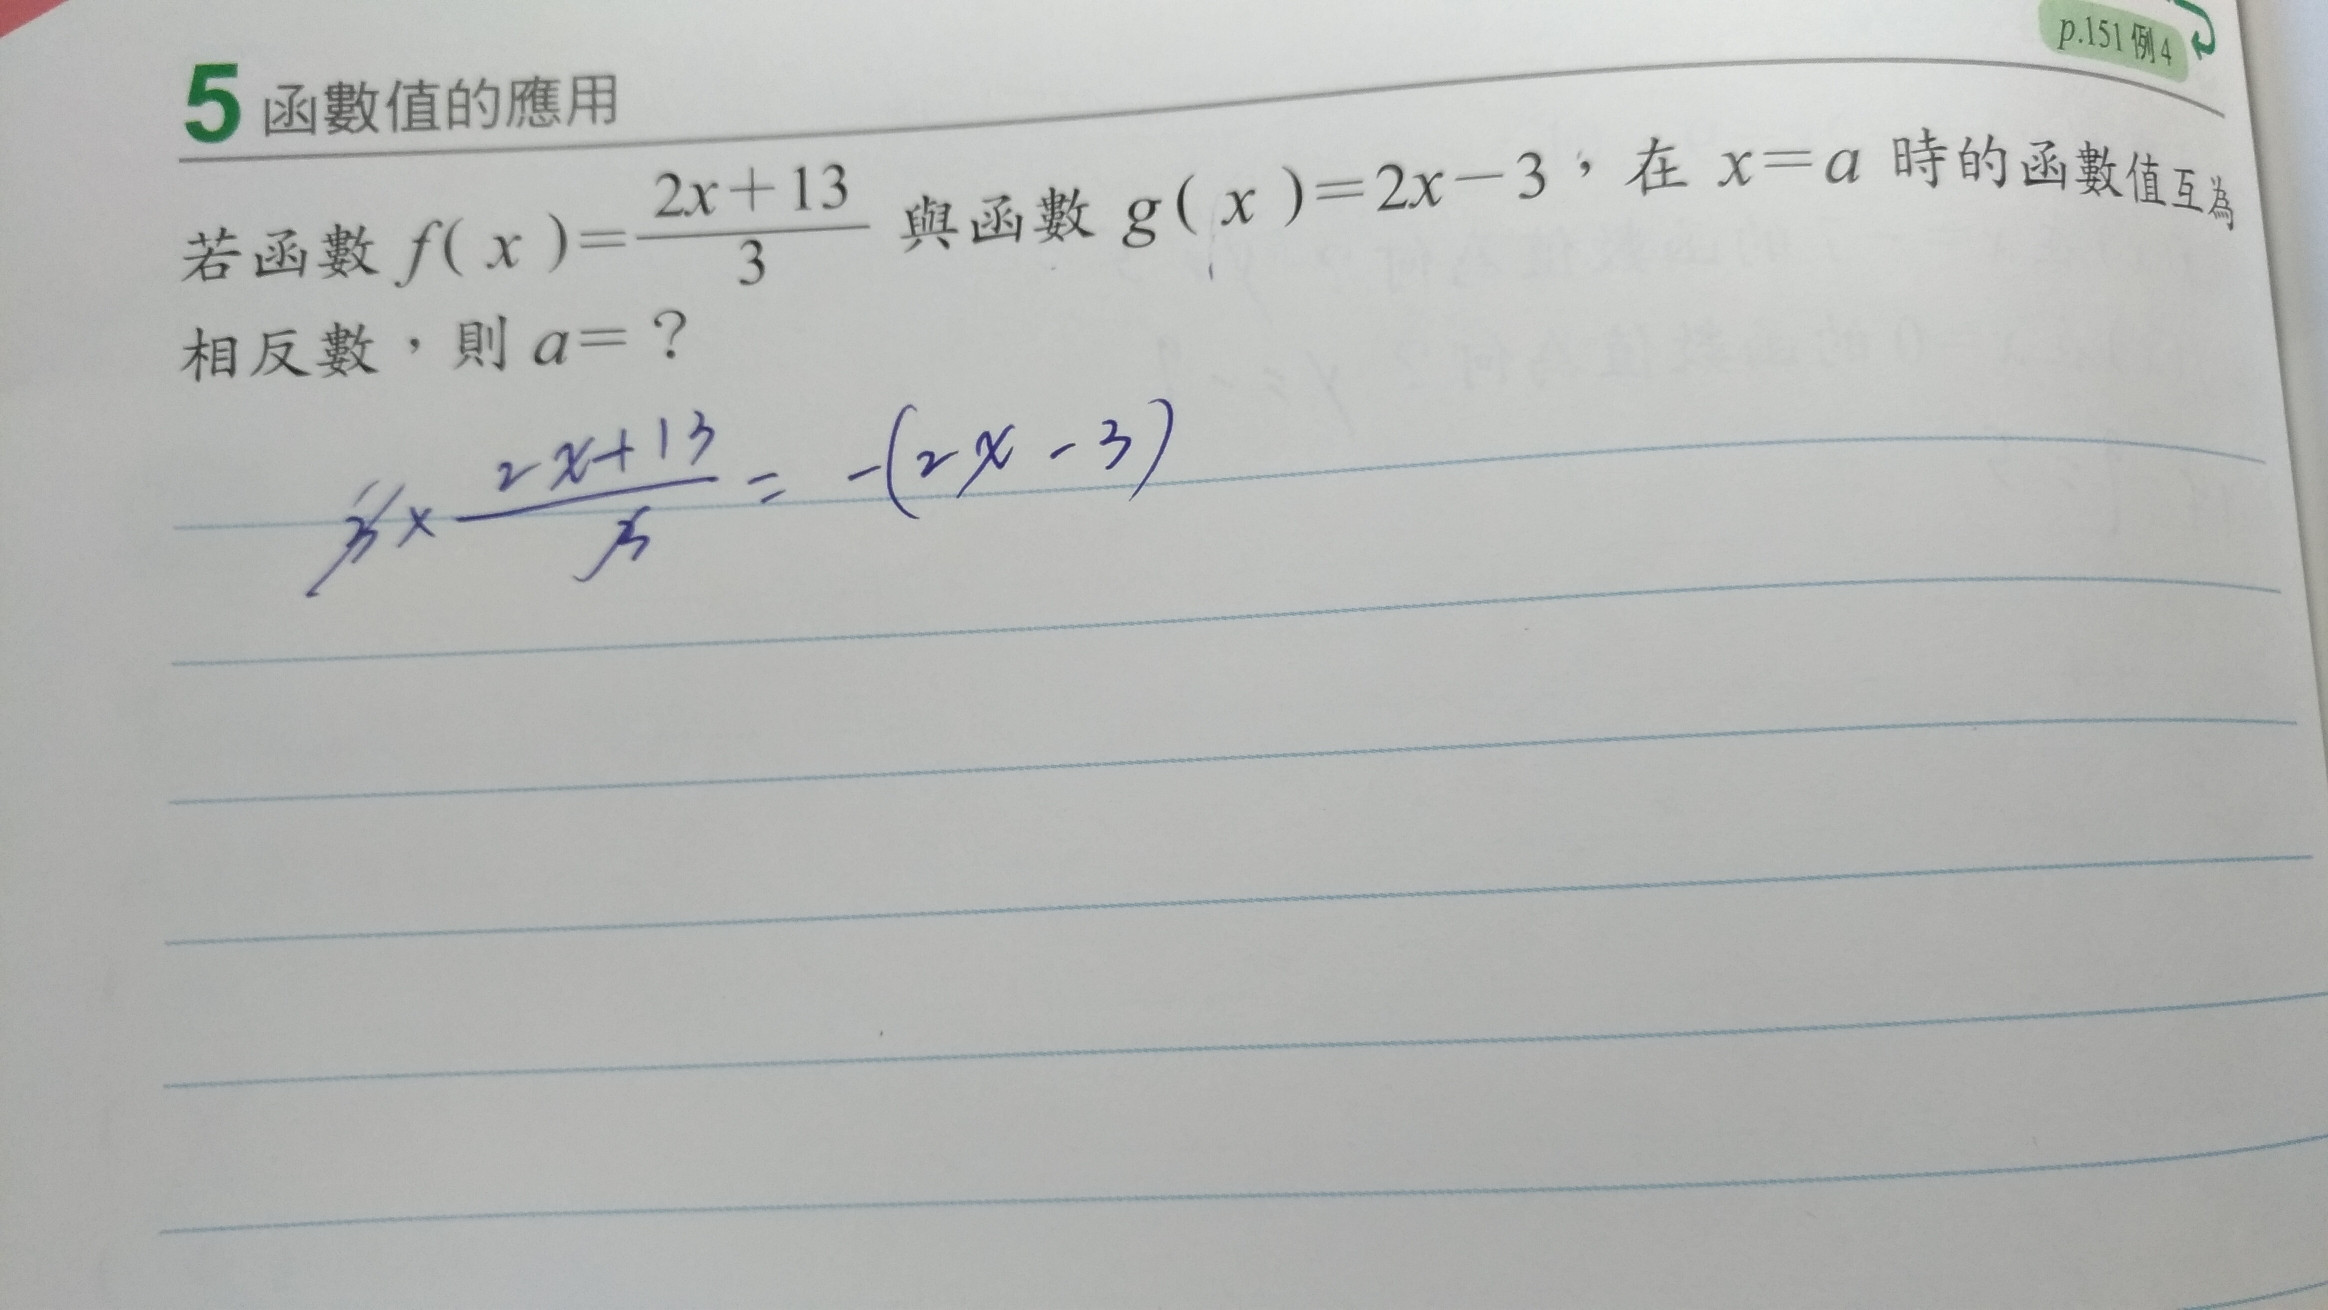 p.151例4
5 函數值的應用
若函數 f( x )=\frac{2x+13}{3} 與函數 g( x )=2x-3,在 x=a 時的函數值互為
相反數,則 a=?
3×\frac{2x+13}{3}=-(2x-3)